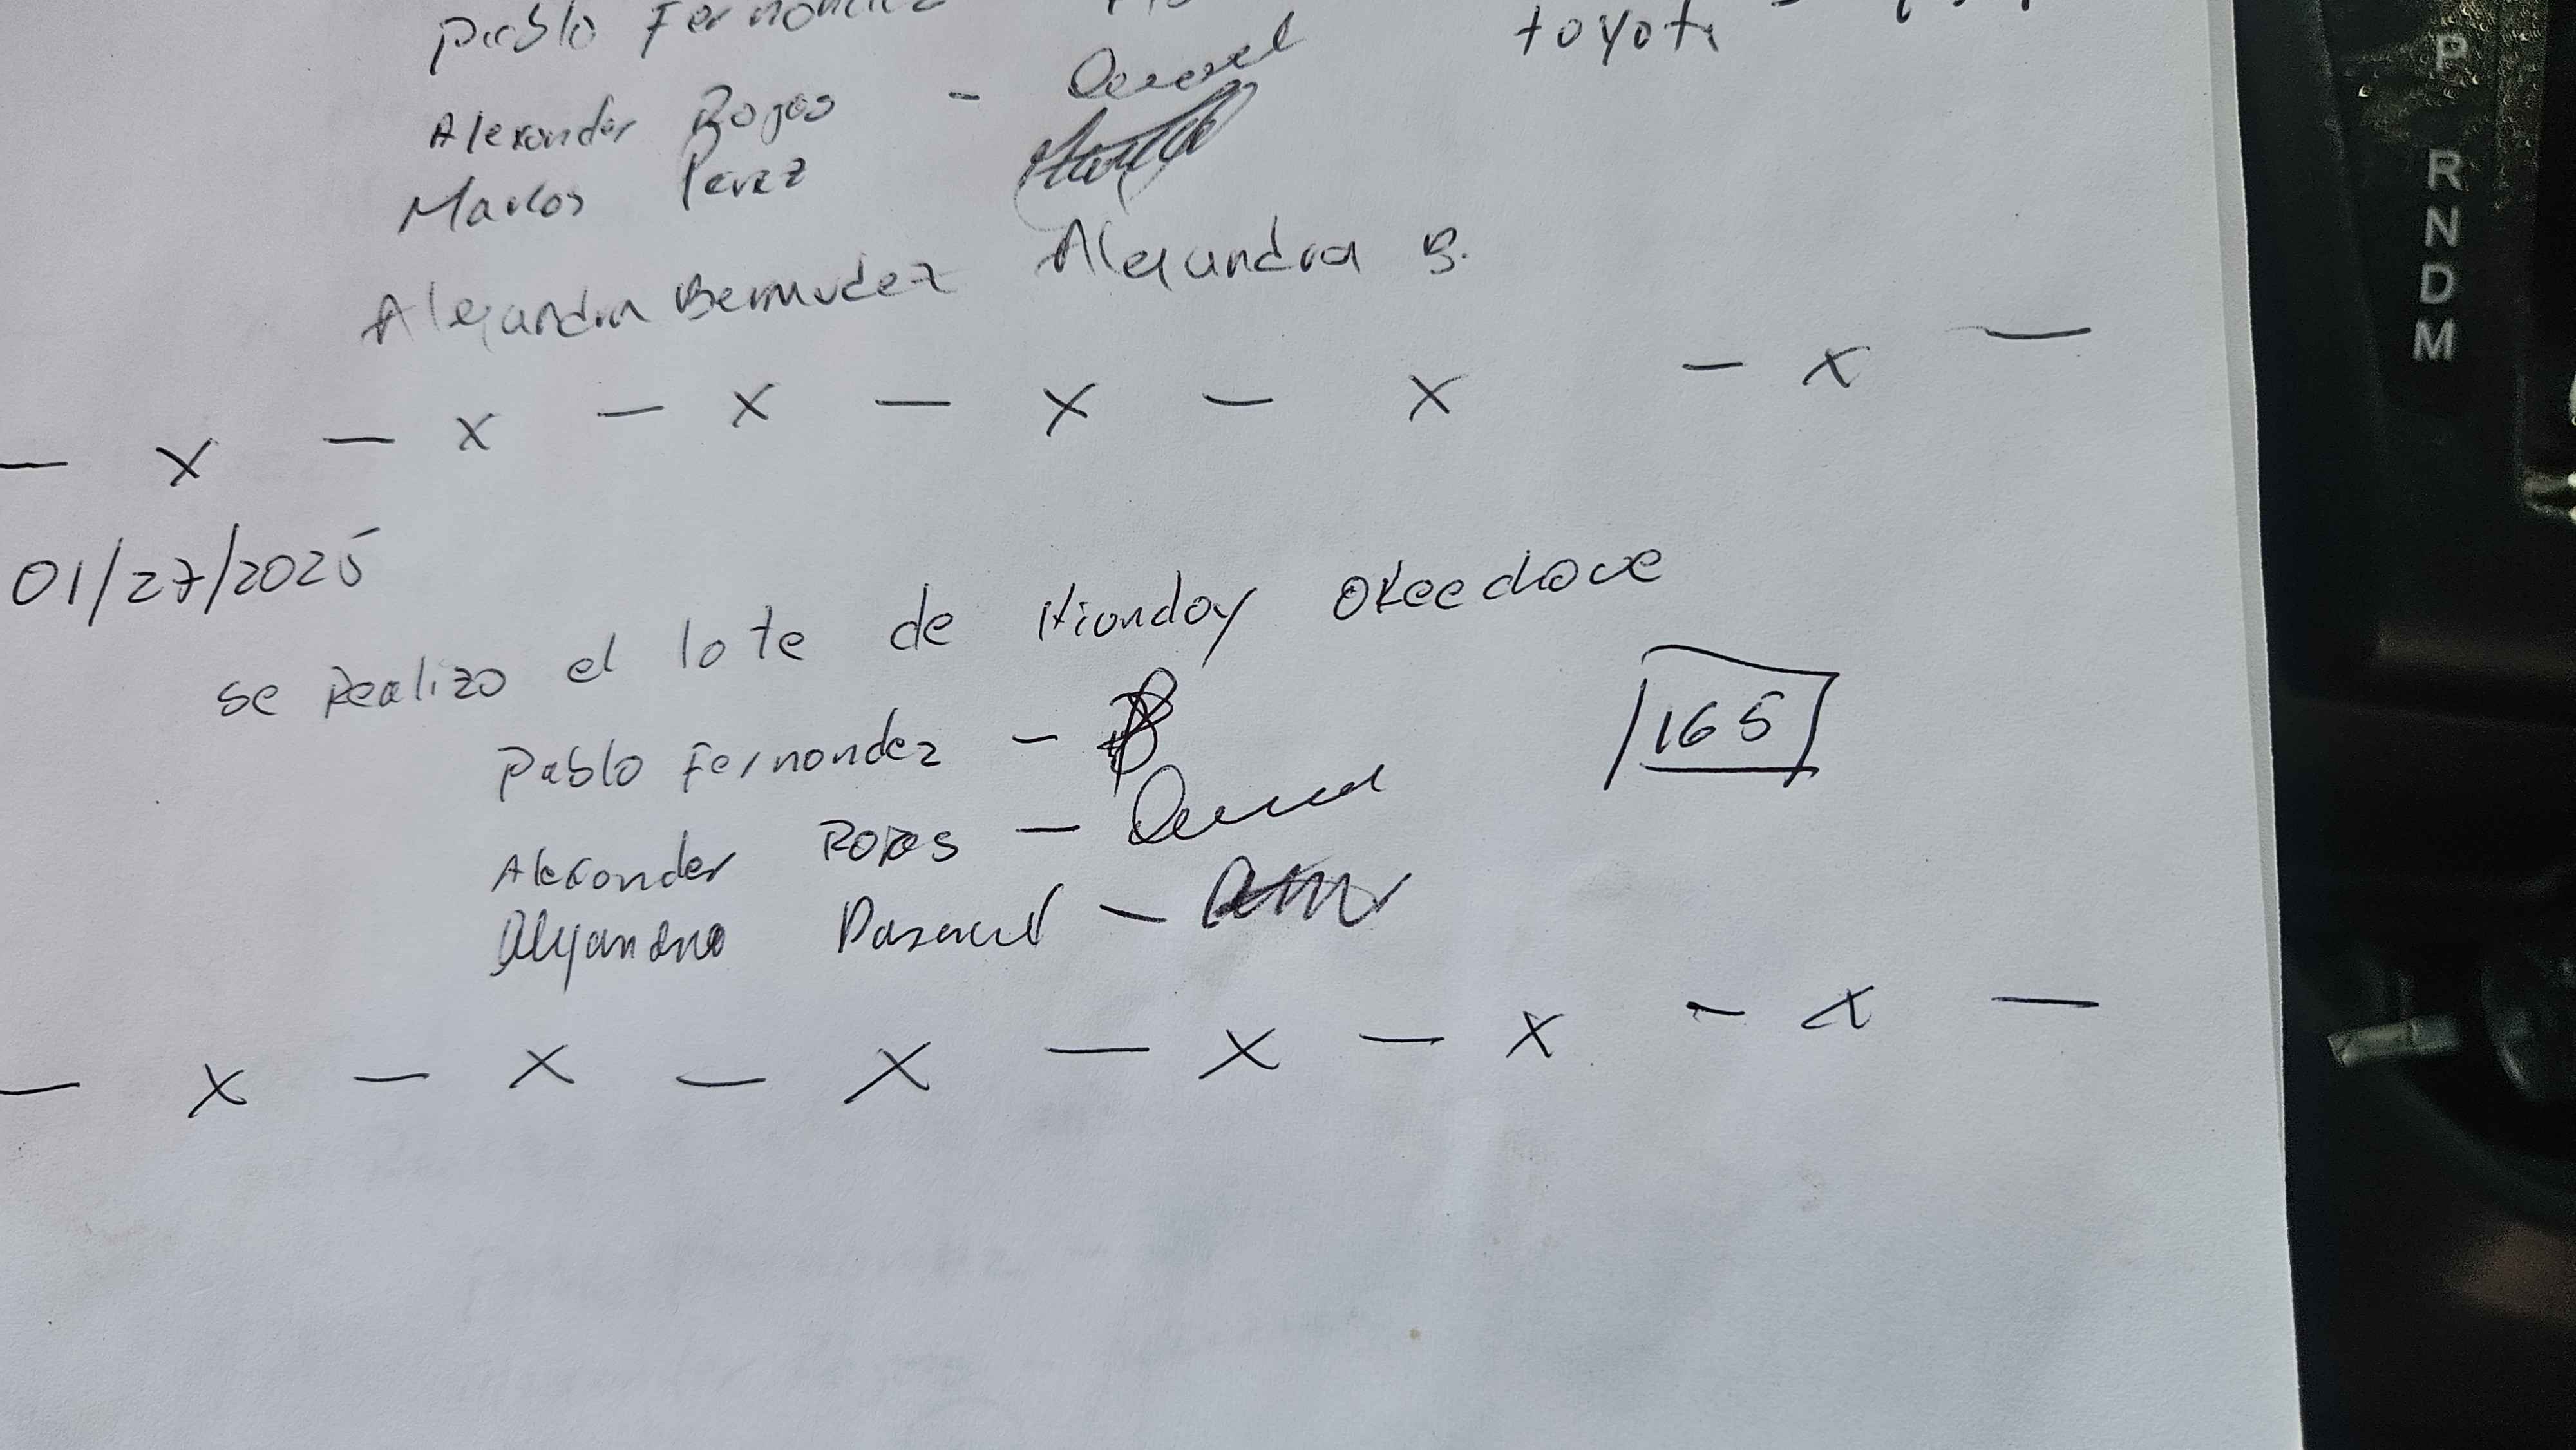 Pablo Fernandez
toyota
Alexander Rojas -
Marcos Perez
Alejandra Bermudez Alejandra B.
— x — x — x — x — x — x —
01/27/2025
se Realizo el lote de Hionday Okeechove
165
Pablo Fernondez -
Alexonder Rojas —
Alejandro —
— x — x — x — x — x — x —
P
R
N
D
M